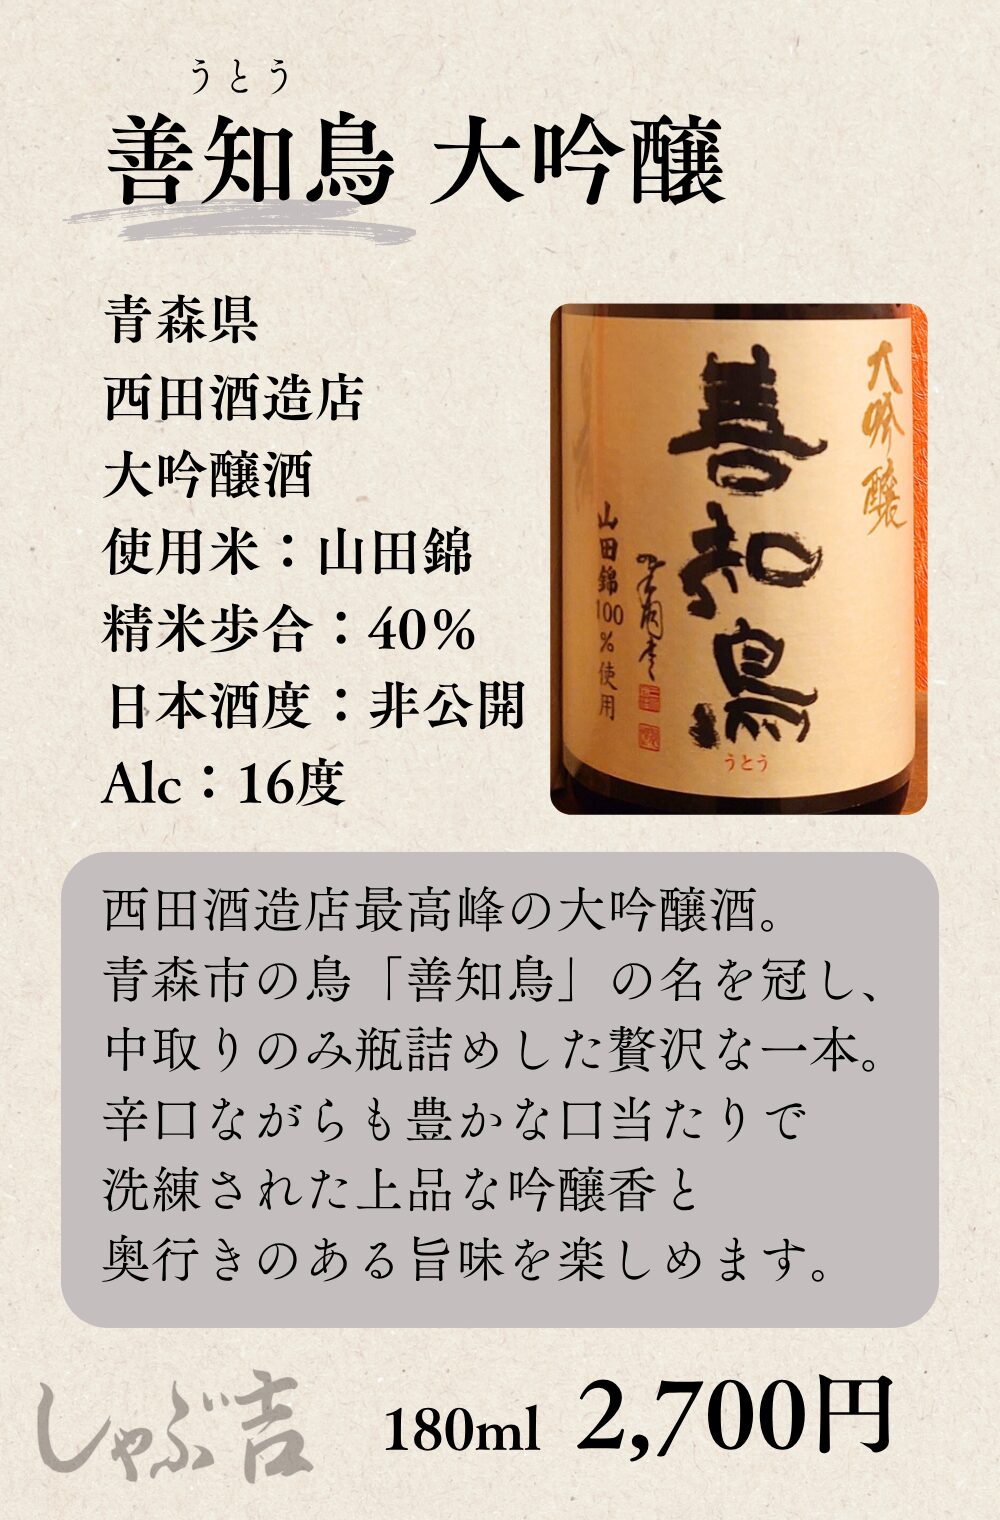 うとう
善知鳥 大吟醸
青森県
西田酒造店
大吟醸酒
使用米：山田錦
精米歩合：40%
日本酒度：非公開
Alc：16度
大吟醸
善知鳥
うとう
山田錦100%使用
西田酒造店最高峰の大吟醸酒。
青森市の鳥「善知鳥」の名を冠し、
中取りのみ瓶詰めした贅沢な一本。
辛口ながらも豊かな口当たりで
洗練された上品な吟醸香と
奥行きのある旨味を楽しめます。
しゃぶ吉
180ml 2,700円